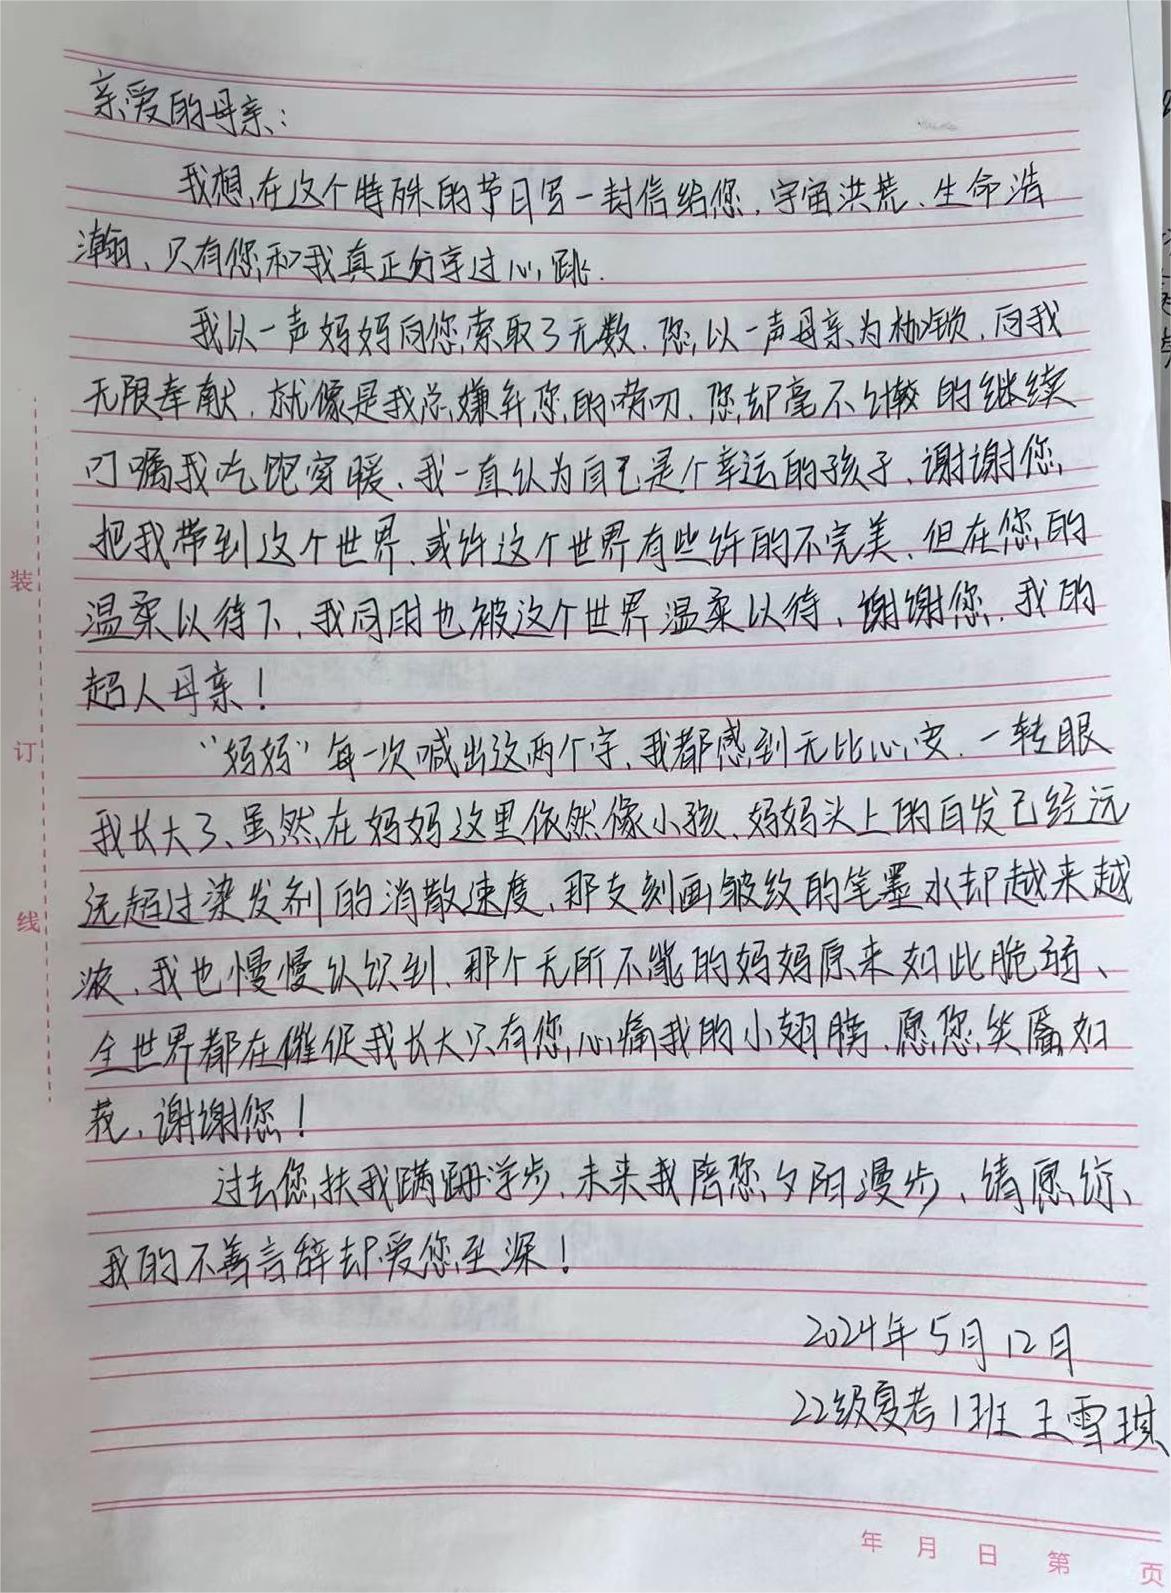 亲爱的母亲:
我想在这个特殊的节日写一封信给您.宇宙洪荒、生命浩
瀚、只有您和我真正分享过心跳.
我以一声妈妈向您索取了无数.您以一声母亲为枷锁.向我
无限奉献.就像是我总嫌弃您的唠叨.您却毫不计较的继续
叮嘱我吃饱穿暖、我一直认为自己是个幸运的孩子、谢谢您
把我带到这个世界、或许这个世界有些许的不完美、但在您的
温柔以待下、我同时也被这个世界温柔以待、谢谢您.我的
超人母亲!
“妈妈”每一次喊出这两个字、我都感到无比心安.一转眼
我长大了、虽然在妈妈这里依然像小孩、妈妈头上的白发已经远
远超过染发剂的消散速度、那支刻画皱纹的笔墨水却越来越
浓、我也慢慢认识到、那个无所不能的妈妈原来如此脆弱、
全世界都在催促我长大只有您心痛我的小翅膀、愿您笑靥如
花、谢谢您!
过去您扶我蹒跚学步、未来我陪您夕阳漫步、请原谅、
我的不善言辞却爱您至深!
2024年5月12日
22级夏考1班 王雪琪
装
订
线
年 月 日 第 页